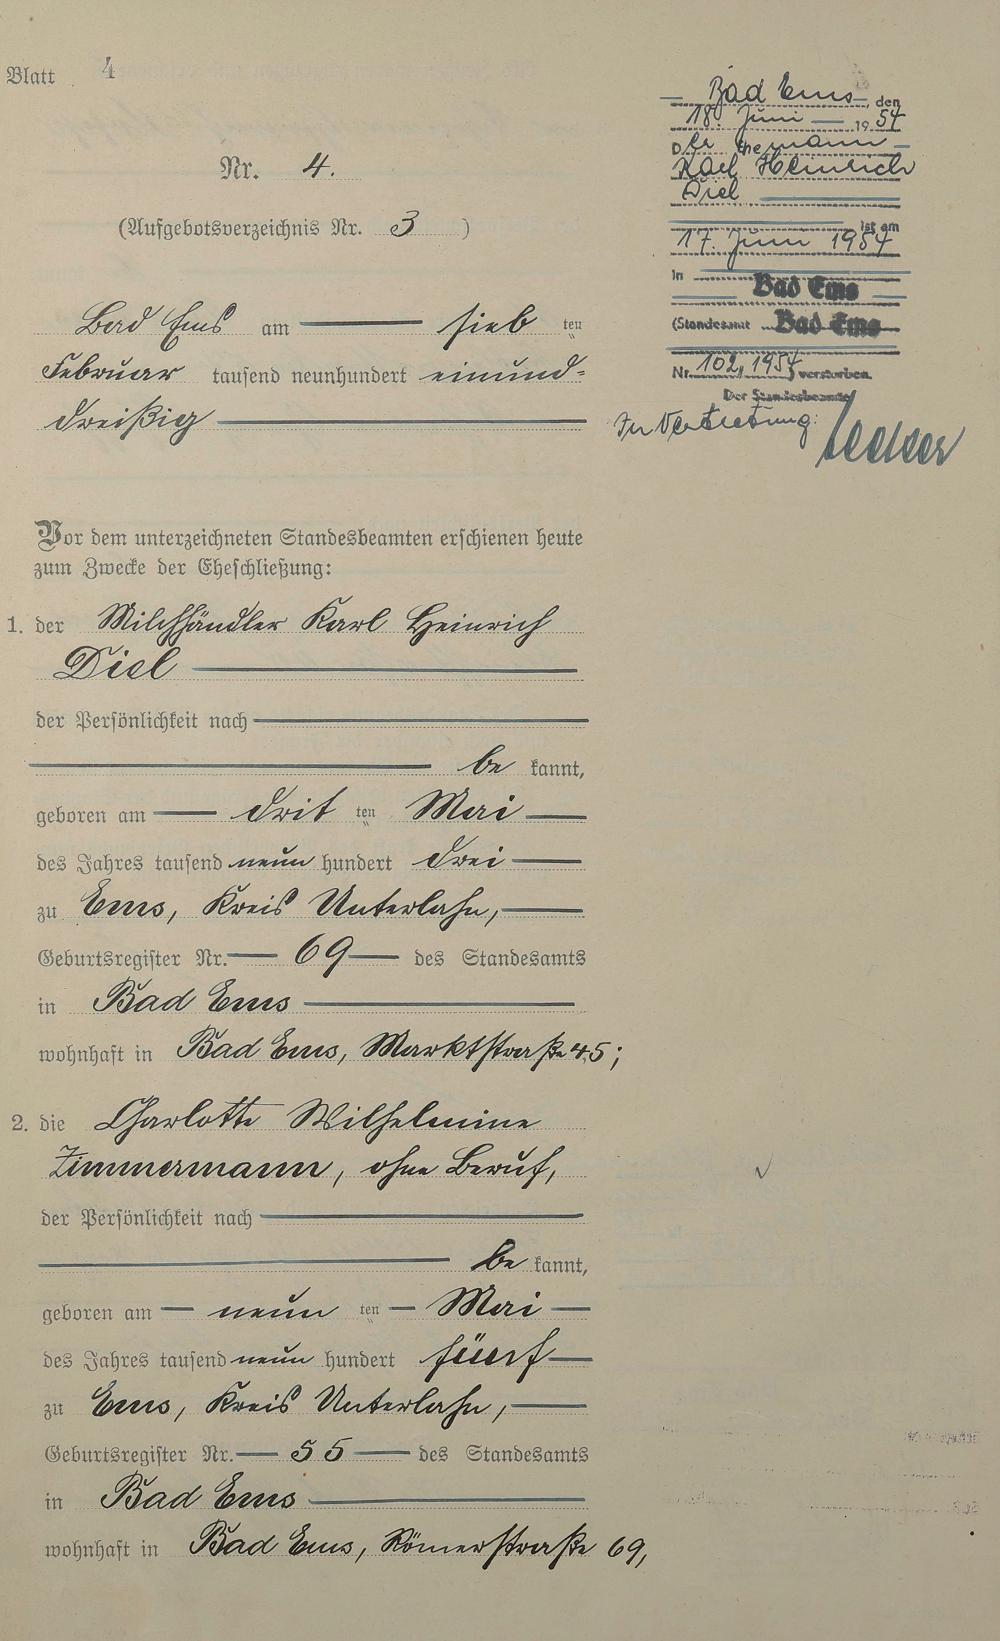 Blatt 4
Nr. 4.
(Aufgebotsverzeichnis Nr. 3 )
Bad Ems am sieb ten
Februar tausend neunhundert einund-
dreißig
Bad Ems, den
18. Juni 1954
Der Ehemann
Karl Heinrich
Diel
ist am
17. Juni 1954
in Bad Ems
(Standesamt Bad Ems
Nr. 102, 1954) verstorben.
Der Standesbeamte
In Vertretung:
Vor dem unterzeichneten Standesbeamten erschienen heute
zum Zwecke der Eheschließung:
1. der Milchhändler Karl Heinrich
Diel
der Persönlichkeit nach
be kannt,
geboren am drit ten Mai
des Jahres tausend neun hundert drei
zu Ems, Kreis Unterlahn,
Geburtsregister Nr. 69 des Standesamts
in Bad Ems
wohnhaft in Bad Ems, Marktstraße 45;
2. die Charlotte Wilhelmine
Zimmermann, ohne Beruf,
der Persönlichkeit nach
be kannt,
geboren am neun ten Mai
des Jahres tausend neun hundert fünf
zu Ems, Kreis Unterlahn,
Geburtsregister Nr. 55 des Standesamts
in Bad Ems
wohnhaft in Bad Ems, Römerstraße 69,